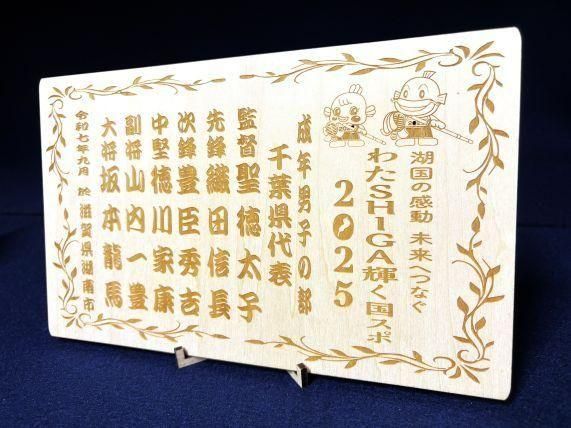 湖国の感動 未来へつなぐ
わたSHIGA輝く国スポ
2025
成年男子の部
千葉県代表
監督聖徳太子
先鋒織田信長
次鋒豊臣秀吉
中堅徳川家康
副将山内一豊
大将坂本龍馬
令和七年九月 於 滋賀県湖南市